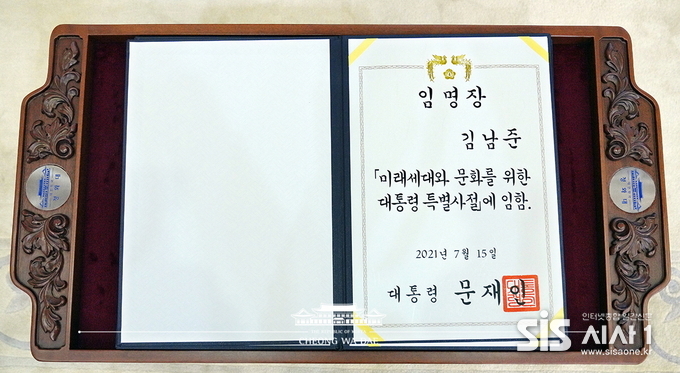 임 명 장
김 남 준
「미래세대와 문화를 위한
대통령 특별사절」에 임함.
2021년 7월 15일
대 통 령 문 재 인
CHEONG WA DAE
인터넷종합 일간신문
SIS 시사1
www.sisaone.kr